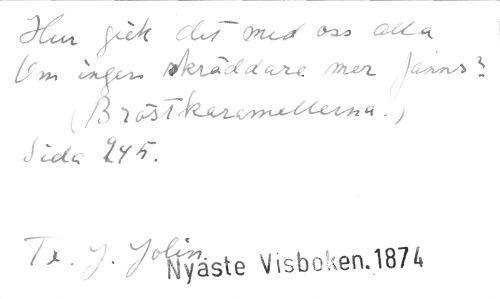 Hur gick det med oss alla
Om ingen skräddare mer fanns?
(Bröstkaramellerna.)
Sida 245.
Tx. J. Jolin.
Nyaste Visboken. 1874